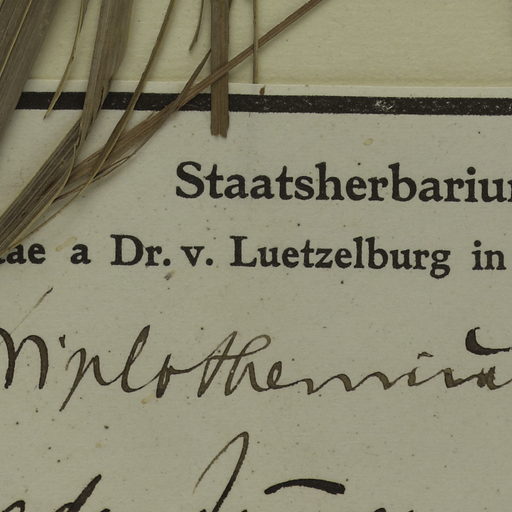 Staatsherbariu
tae a Dr. v. Luetzelburg in
Diplothemiu